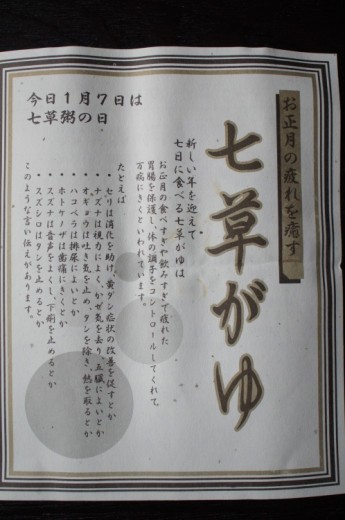 今日1月7日は
七草粥の日
お正月の疲れを癒す
七草がゆ
新しい年を迎えて
七日に食べる七草がゆは
お正月の食べすぎや飲みすぎで疲れた
胃腸を保護し、体の調子をコントロールしてくれて、
万病にきくといわれています。
たとえば
・セリは消化を助け、黄ダン症状の改善を促すとか
・ナズナは視力、かぜ気を去り、五臓によいとか
・オギョウは吐き気を止め、タンを除き、熱を取るとか
・ハコベラは排尿によいとか
・ホトケノザは歯痛にきくとか
・スズナは音声をよくし、下痢を止めるとか
・スズシロはタンを止めるとか
このような言い伝えがあります。